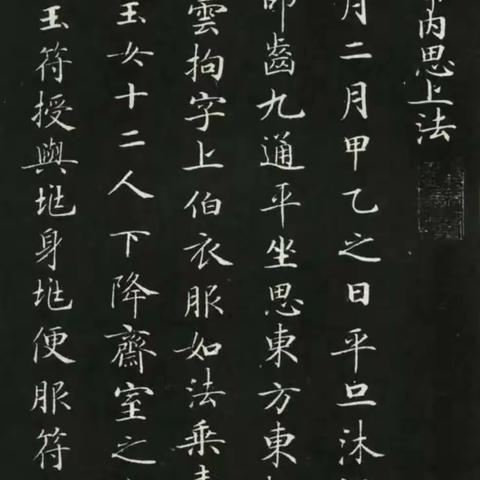 内思上法
月二月甲乙之日平旦沐
叩齒九通平坐思東方東
雲拘字上伯衣服如法乘
玉女十二人下降齋室之
玉符授與地身地便服符